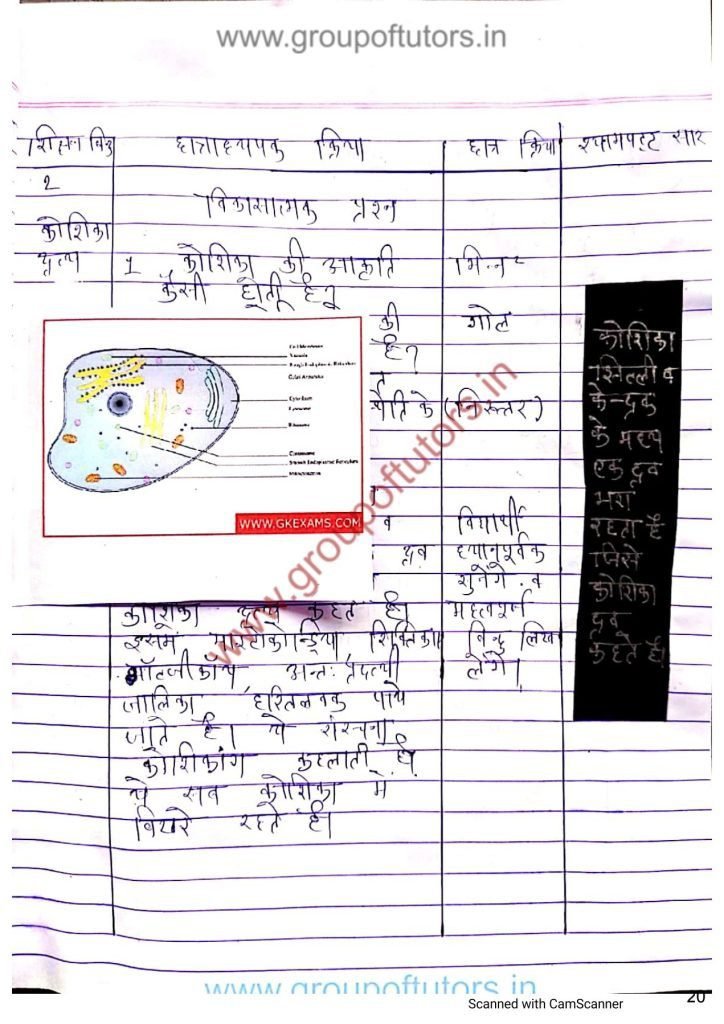 www.groupoftutors.in
शिक्षण बिंदु छात्राध्यापक क्रिया छात्र क्रिया श्यामपट्ट सार
2
विकासात्मक प्रश्न
कोशिका
द्रव्य
1 कोशिका की आकृति
कैसी होती है?
की
है?
कोशिका द्रव्य कहते हैं।
इसमें माइटोकोन्ड्रिया, रिक्तिका
गॉल्जीकाय, अन्तः प्रद्रव्यी
जालिका, हरितलवक पाये
जाते है। ये संरचना
कोशिकांग कहलाती है
ये सब कोशिका में
बिखरे रहते है।
भिन्न २
गोल
(निरूत्तर)
विद्यार्थी
ध्यानपूर्वक
सुनेंगे व
महत्वपूर्ण
बिन्दु लिख
लेंगे।
कोशिका
झिल्ली व
केन्द्रक
के मध्य
एक द्रव
भरा
रहता है
जिसे
कोशिका
द्रव
कहते है।
Cell Membrane
Vacuole
Rough Endoplasmic Reticulum
Golgi Apparatus
Cytoplasm
Lysosome
Ribosome
Centrosome
Smooth Endoplasmic Reticulum
Mitochondrion
WWW.GKEXAMS.COM
www.groupoftutors.in
www.groupoftutors.in
Scanned with CamScanner
20